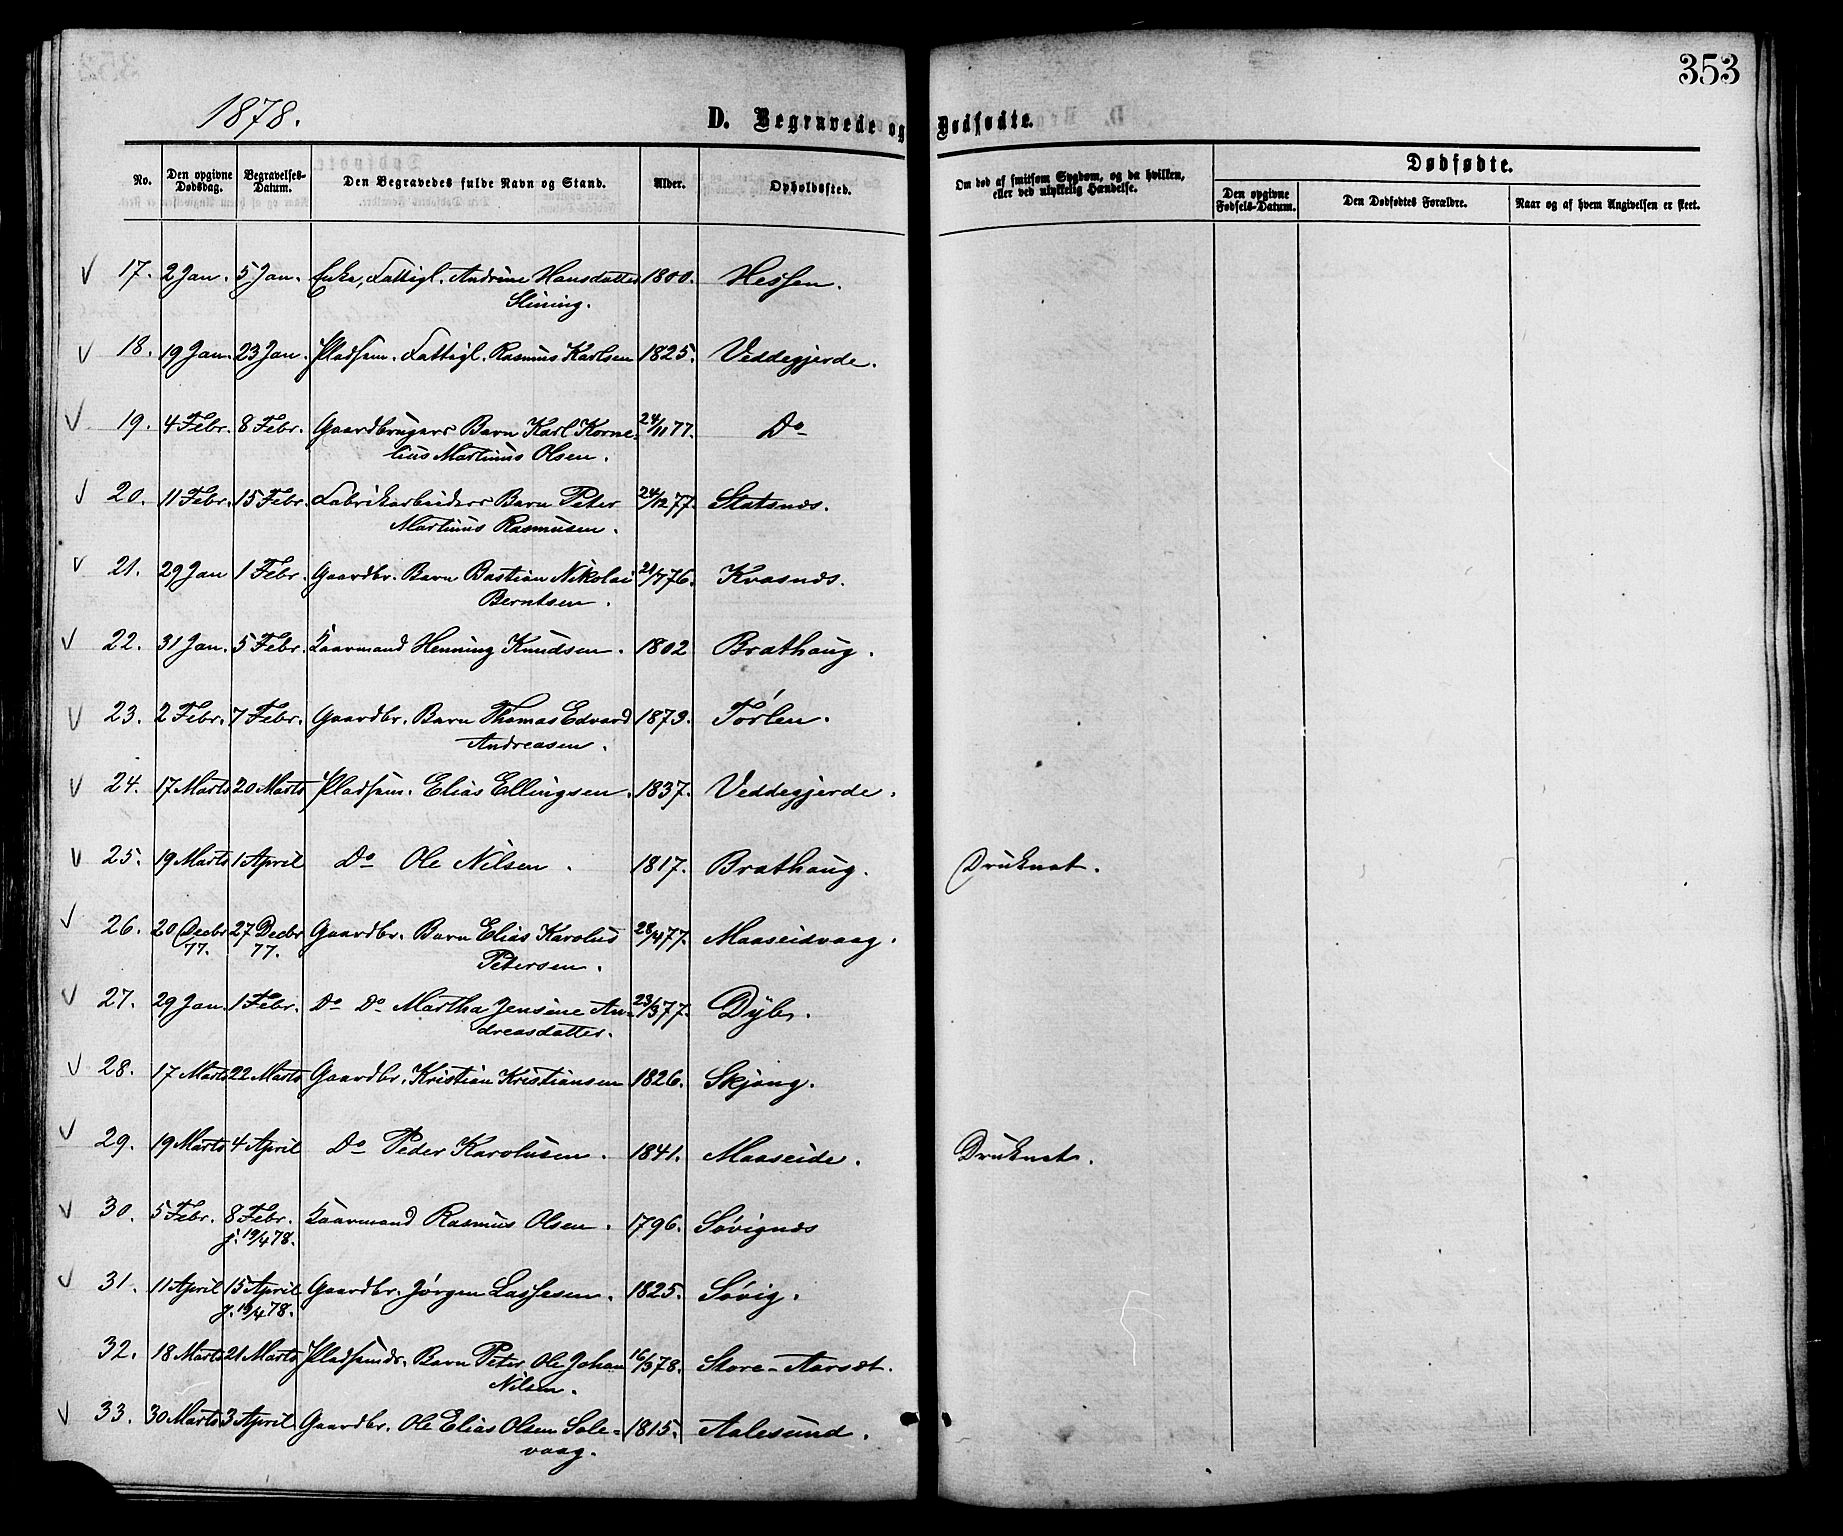 353
1878.
D. Begravede og Dødfødte.
Dødfødte.
No. Den opgivne Dødsdag. Begravelses-Datum. Den Begravedes fulde Navn og Stand. Alder. Opholdssted. Om død af smitsom Sygdom, og da hvilken, eller ved ulykkelig Hændelse. Den opgivne Fødsels-Datum. Den Dødfødtes Forældre. Naar og af hvem Angivelsen er skeet.
17. 2 Jan. 5 Jan. Enke, Fattigl. Andrine Hansdatter 1800. Hessen.
Slining.
18. 19 Jan. 23 Jan. Pladsem. Fattigl. Rasmus Karlsen 1825. Veddegjerde.
19. 4 Febr. 8 Febr. Gaardbrugers Barn Karl Korne- 24/11 77. Do
lius Martinus Olsen.
20. 11 Febr. 15 Febr. Fabrikarbeiders Barn Peter 24/12 77. Slatsnæs.
Martinus Rasmusen.
21. 29 Jan 1 Febr. Gaardbr. Barn Bastian Nikolai 21/7 76. Kvasnæs.
Berntsen.
22. 31 Jan. 5 Febr. Kaarmand Henning Knudsen. 1802 Brathaug.
23. 2 Febr. 7 Febr. Gaardbr. Barn Thomas Edvard 1873. Tørlen.
Andreasen.
24. 17 Marts 20 Marts Pladsem. Elias Ellingsen. 1837. Veddegjerde.
25. 19 Marts 1 April Do Ole Nilsen. 1817. Brathaug. Druknet.
26. 20 Decbr 27 Decbr Gaardbr. Barn Elias Karolus 28/4 77. Maaseidvaag.
77. 77. Petersen.
27. 29 Jan. 1 Febr. Do Do Martha Jensine An- 23/3 77. Dyb.
dreasdatter.
28. 17 Marts 22 Marts Gaardbr. Kristian Kristiansen 1826. Skjong.
29. 19 Marts 4 April Do Peder Karolusen. 1841. Maaseide. Druknet.
30. 5 Febr. 8 Febr. Kaarmand Rasmus Olsen. 1796. Søvignæs
j. 19/4 78.
31. 11 April 15 April Gaardbr. Jørgen Lassesen. 1825. Søvig.
j. 19/4 78.
32. 18 Marts 21 Marts Pladsemds. Barn Peter Ole Johan 16/3 78. Store-Aarsæt.
Nilsen.
33. 30 Marts 3 April Gaardbr. Ole Elias Olsen Sole- 1815. Aalesund.
vaag.